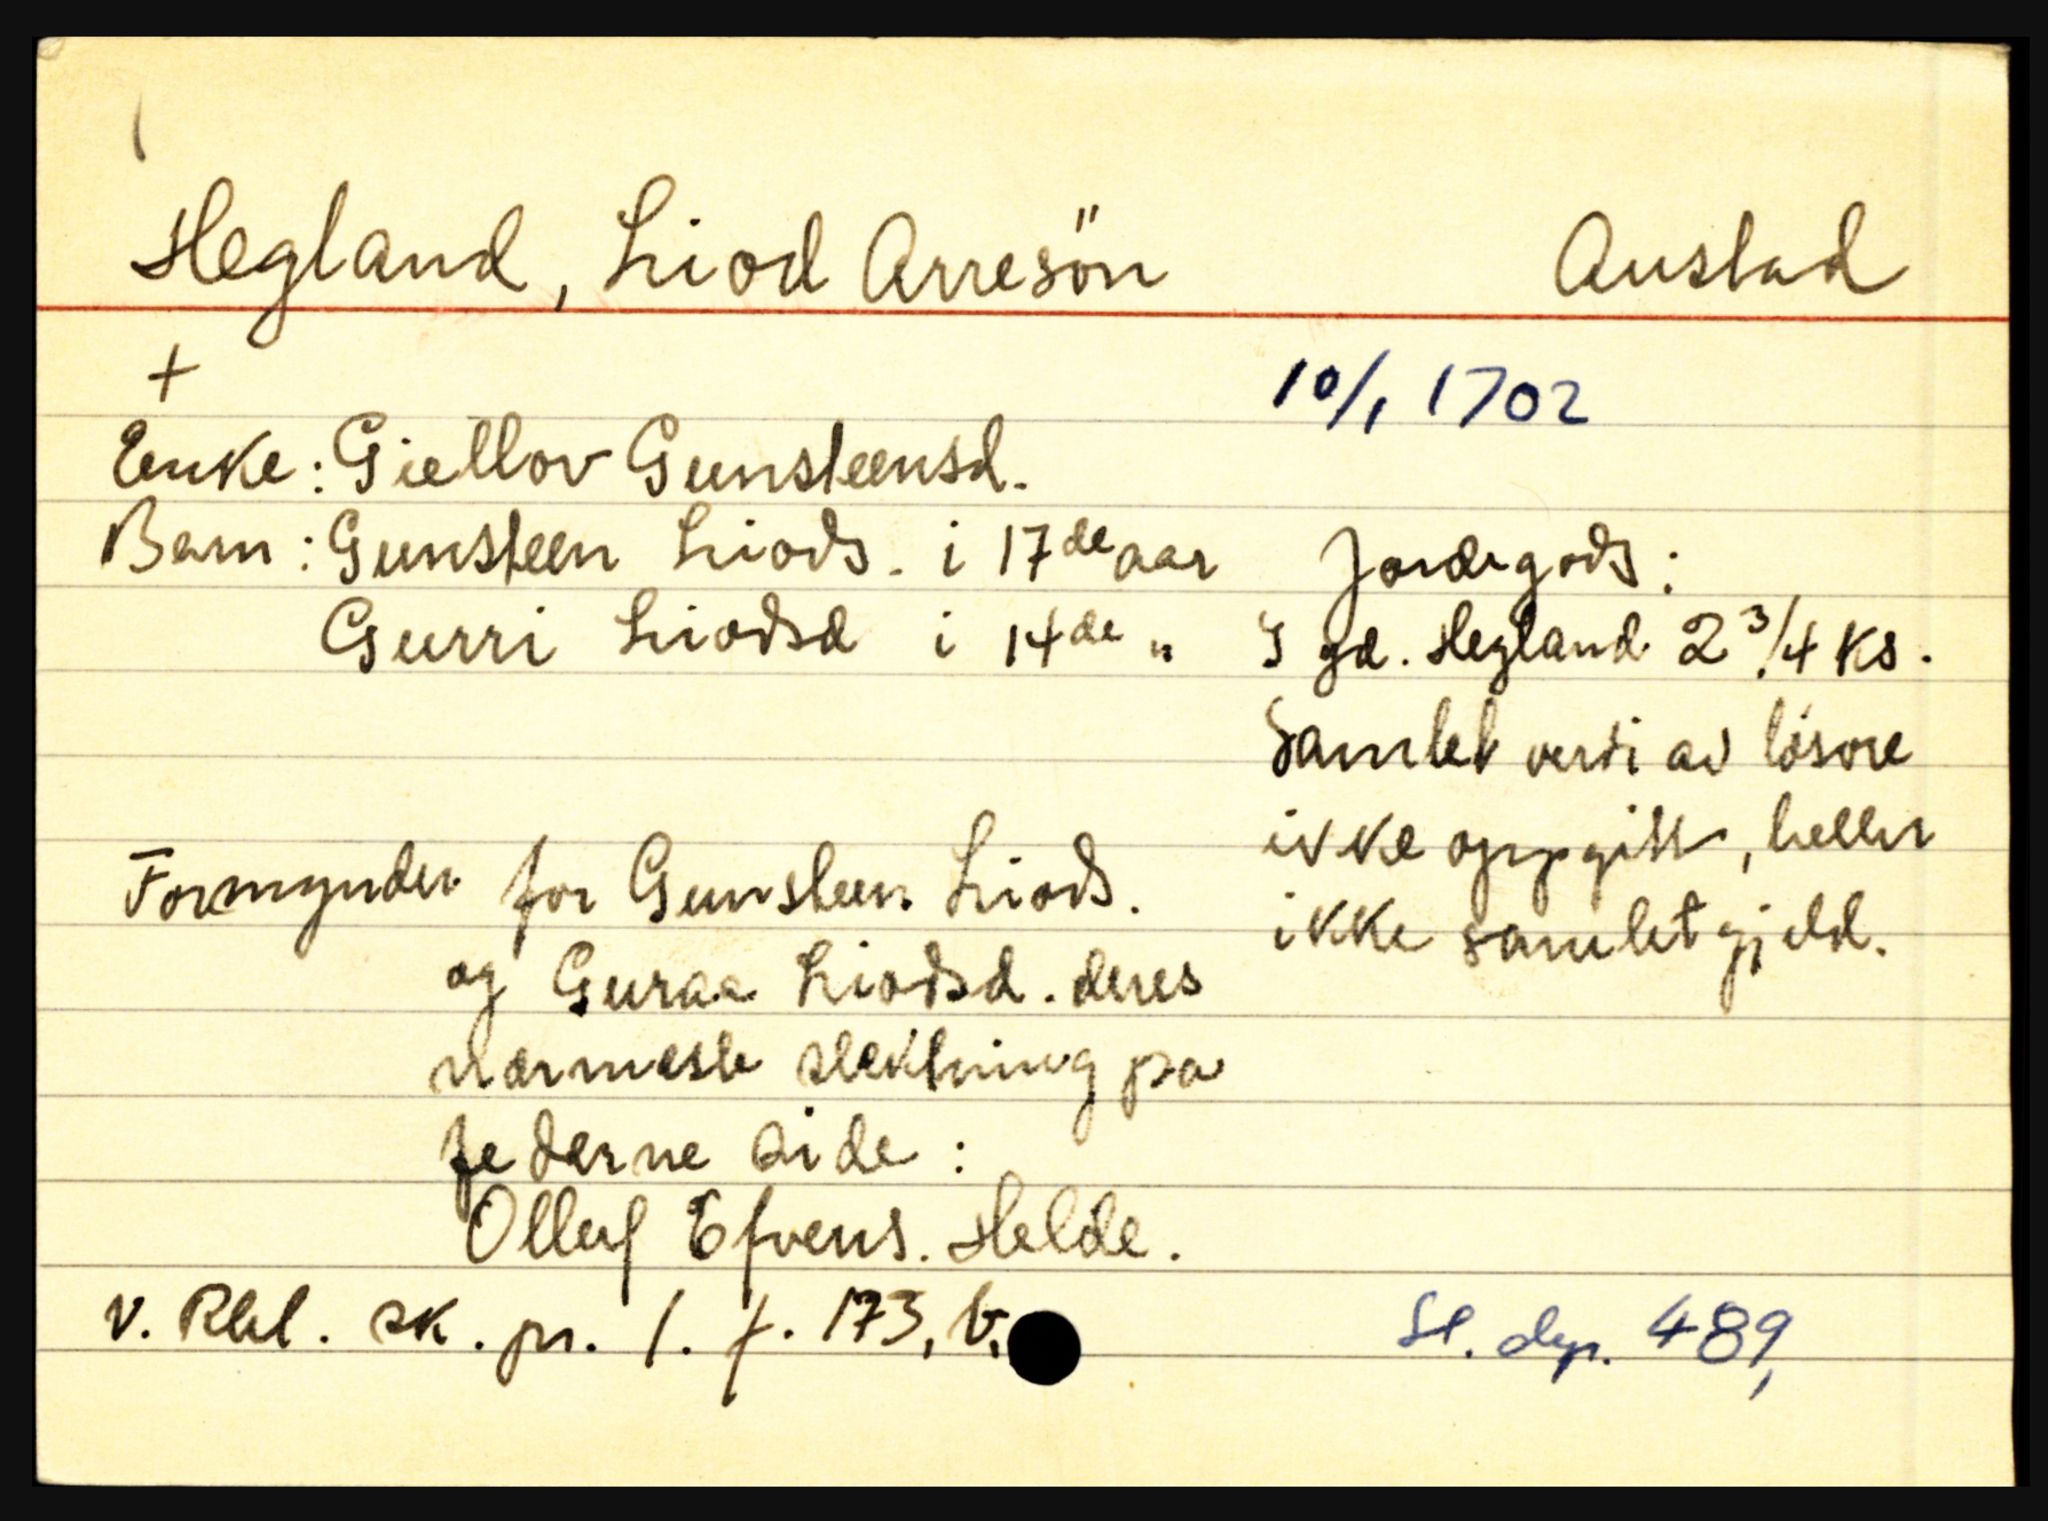 Hegland, Liod Arresön Austad
+
10/1 1702
Enke: Giellov Gunsteensd.
Barn: Gunsteen Liods. i 17de aar
Gurri Liodsd i 14de "
Jordegods:
I gd. Hegland 2 3/4 ks.
Samlet verdi av lösöre
ikke oppgitt, heller
ikke samlet gjeld.
Formynder for Gunsteen Liods.
og Guraa Liodsd. deres
nærmeste slektning pa
federne side:
Olluf Efvens. Helde.
v. Rbl. sk. pr. 1. f. 173, b.
Sl. dep. 489,